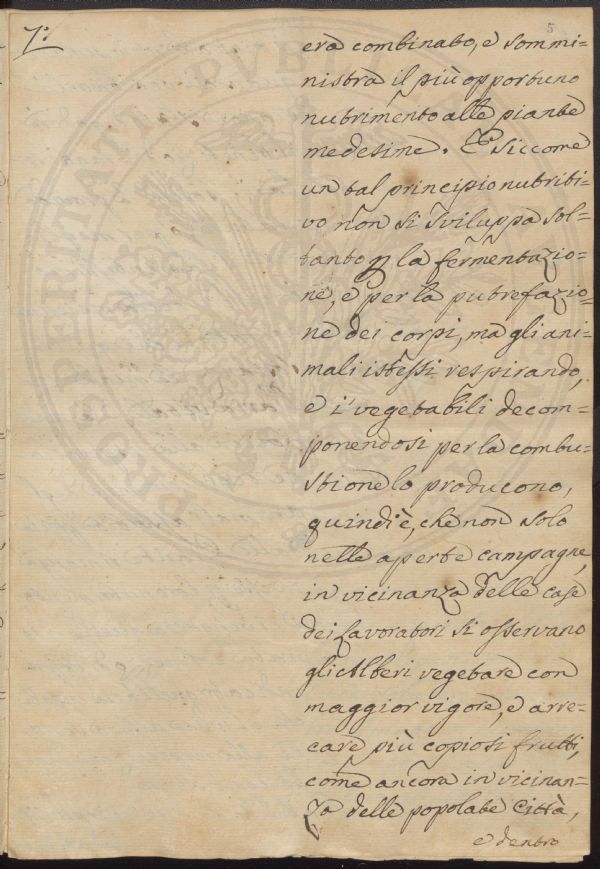 7:
5
era combinato, e sommi=
nistra il più opportuno
nutrimento alle piante
medesime. E siccome
un tal principio nutriti=
vo non si sviluppa sol=
tanto p la fermentazio=
ne, e per la putrefazio=
ne dei corpi, ma gli ani=
mali istessi respirando,
e i vegetabili decom=
ponendosi per la combu=
stione lo producono,
quindi è, che non solo
nelle aperte campagne,
in vicinanza delle case
dei lavoratori si osservano
gli Alberi vegetare con
maggior vigore, e arre=
care più copiosi frutti,
come ancora in vicinan=
za delle popolate Città,
e dentro
PROSPERITATI PUBLI